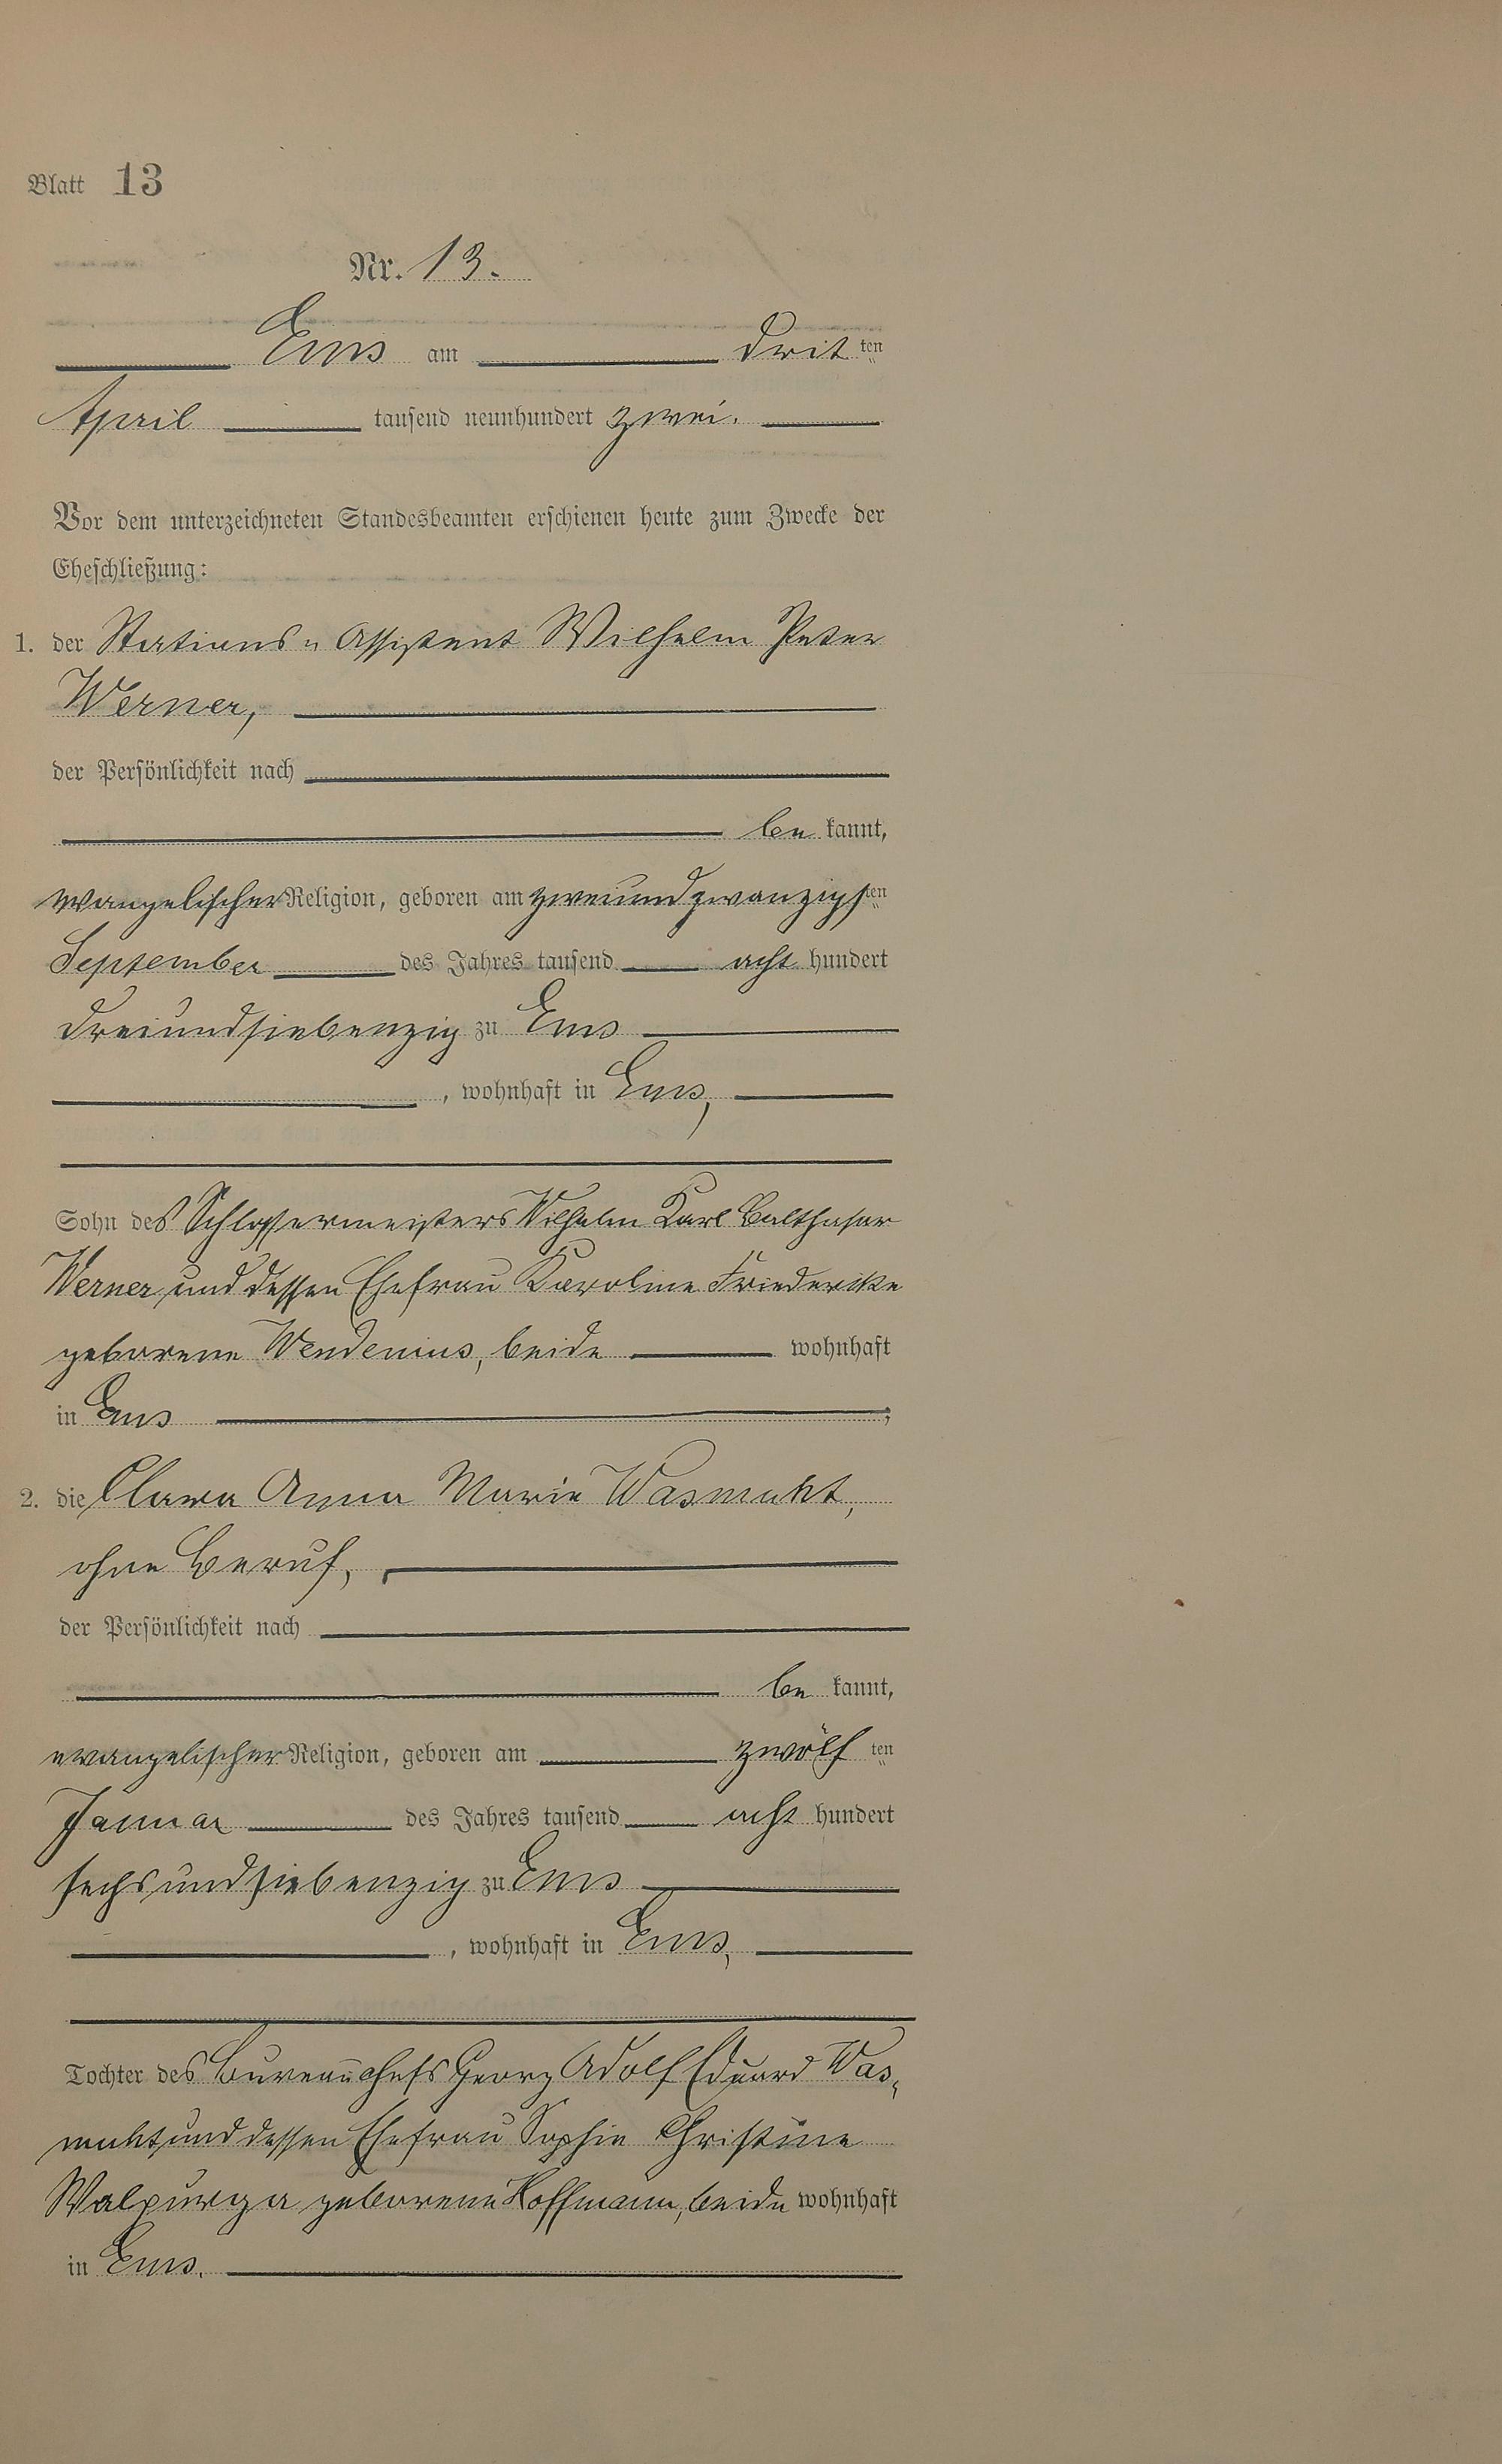 Blatt 13
Nr. 13.
Ems am dritten
April tausend neunhundert zwei.
Vor dem unterzeichneten Standesbeamten erschienen heute zum Zwecke der
Eheschließung:
1. der Stations-Assistent Wilhelm Peter
Werner,
der Persönlichkeit nach
bekannt,
evangelischer Religion, geboren am zweiundzwanzigsten
September des Jahres tausend acht hundert
dreiundsiebenzig zu Ems
, wohnhaft in Ems,
Sohn des Schlossermeisters Wilhelm Karl Balthasar
Werner und dessen Ehefrau Karoline Friedericke
geborene Wendenius, beide wohnhaft
in Ems ;
2. die Clara Anna Marie Wasmuht,
ohne Beruf,
der Persönlichkeit nach
bekannt,
evangelischer Religion, geboren am zwölften
Januar des Jahres tausend acht hundert
sechsundsiebenzig zu Ems
, wohnhaft in Ems,
Tochter des Bureauchefs Georg Adolf Eduard Was-
muht und dessen Ehefrau Sophie Christine
Walpurga geborene Hoffmann, beide wohnhaft
in Ems.